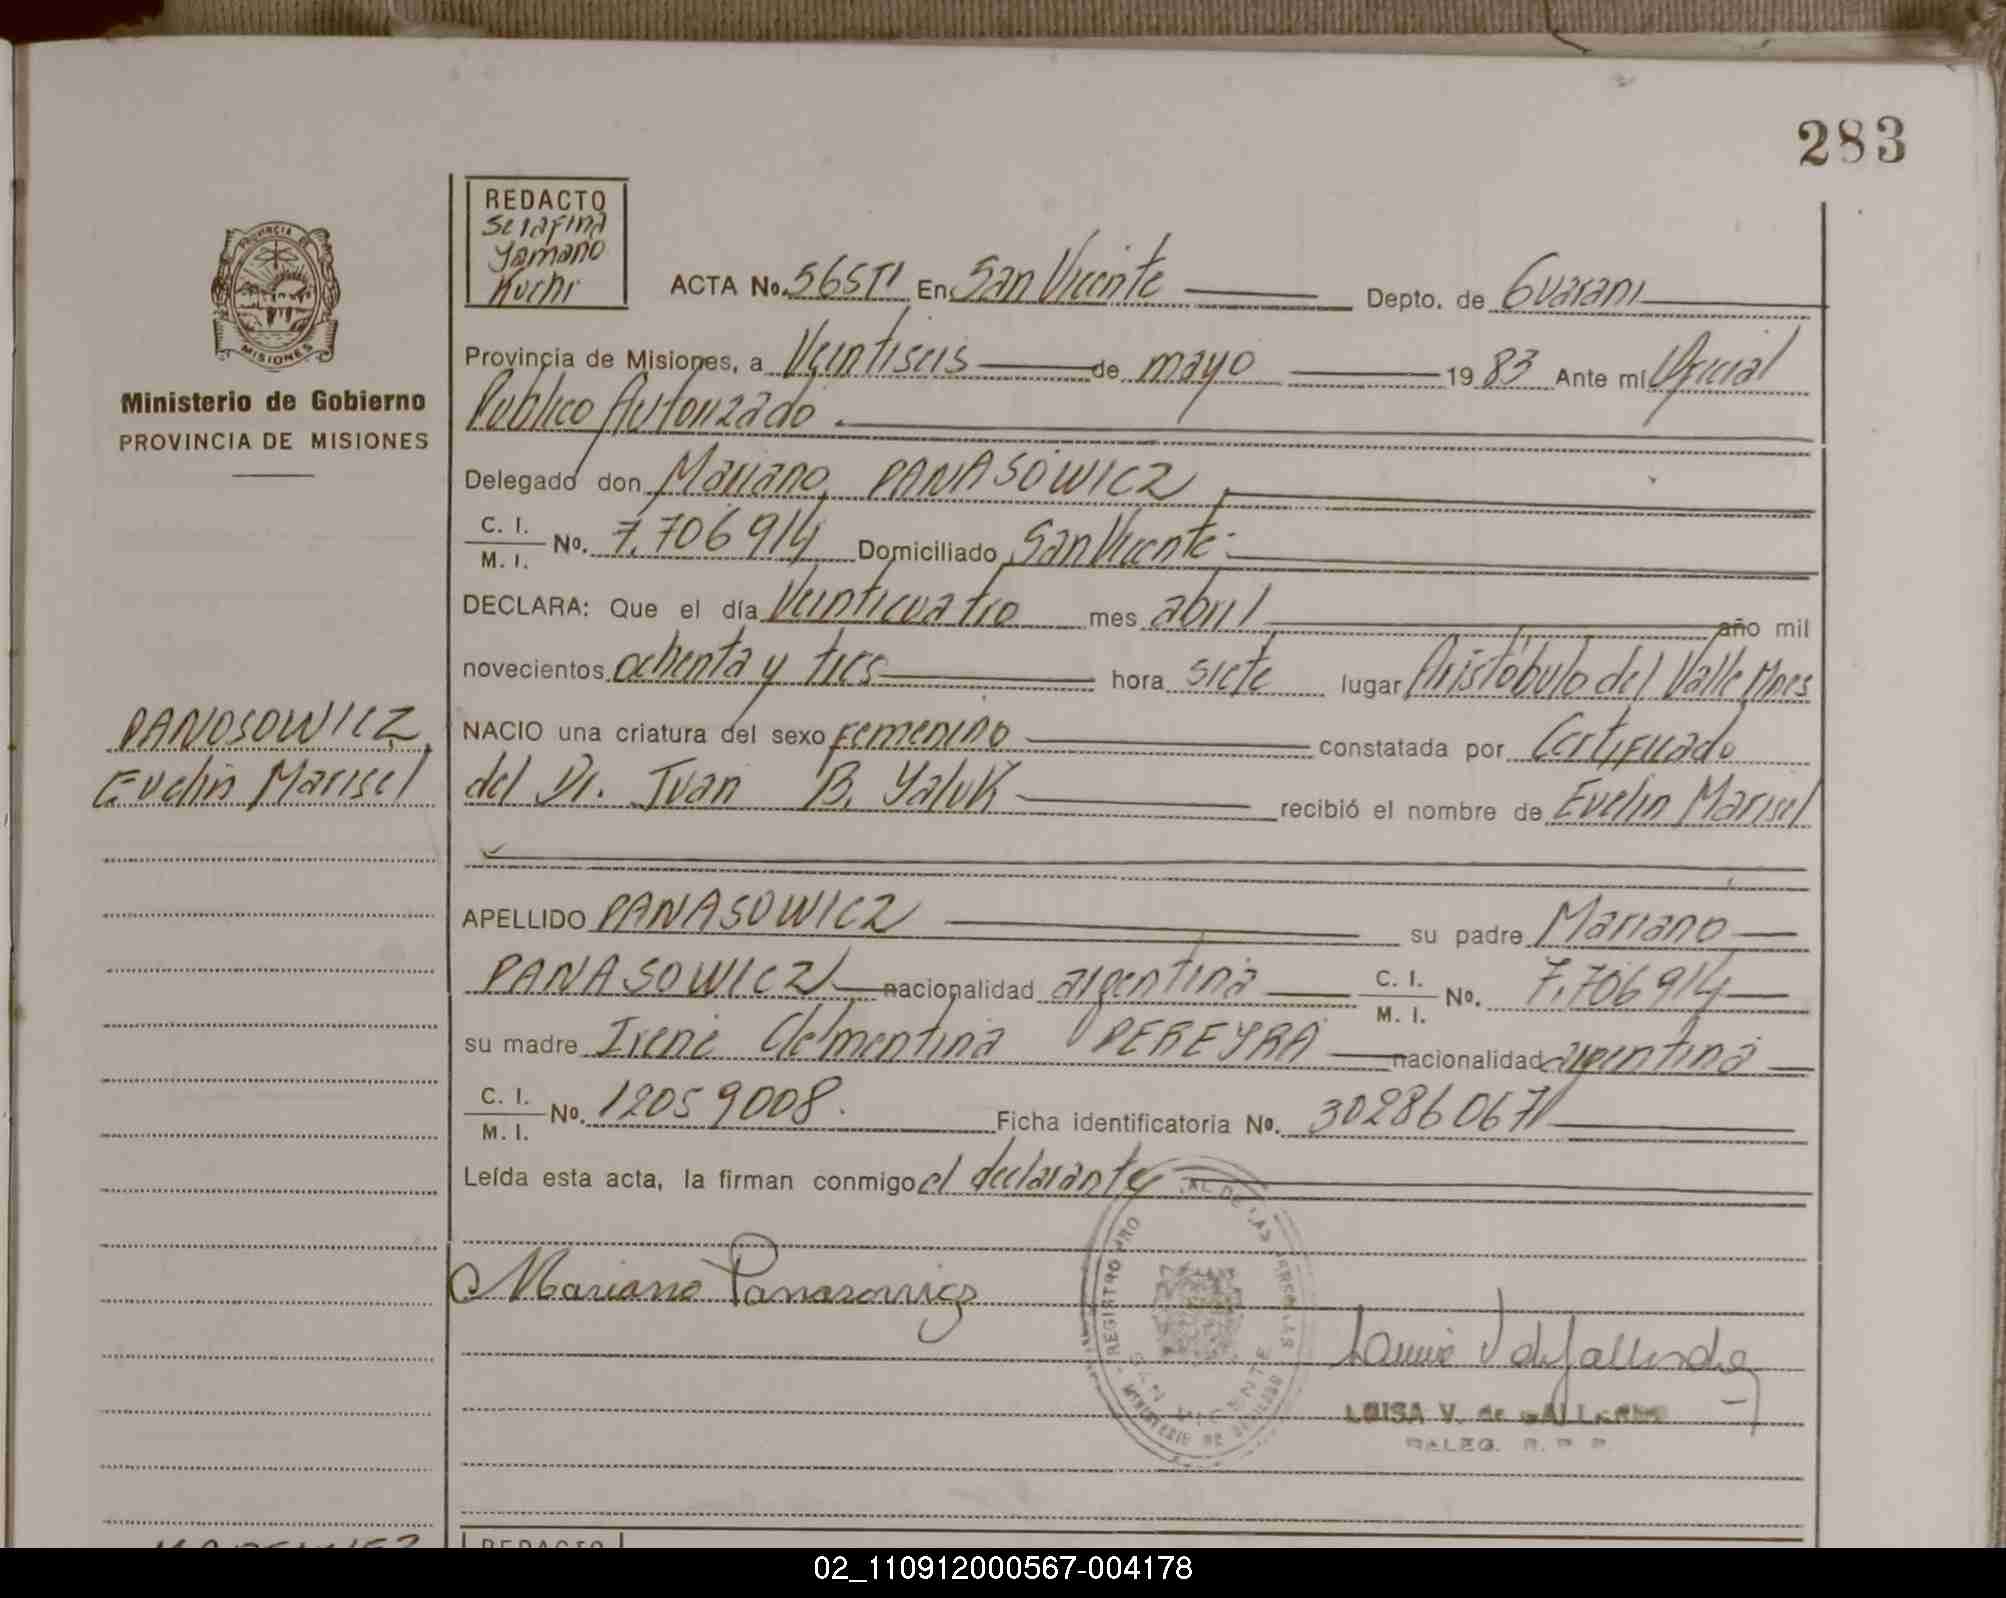 283
REDACTO
Serafina
Yamano
Kuchi
PROVINCIA DE
MISIONES
Ministerio de Gobierno
PROVINCIA DE MISIONES
ACTA No. 565 TI En San Vicente Depto. de Guarani
Provincia de Misiones, a Veintiseis de mayo 19 83 Ante mí Oficial
Publico Autorizado
Delegado don Mariano PANASOWICZ
C. I.
M. I. No. 7.706914 Domiciliado San Vicente
DECLARA: Que el día Veinticuatro mes abril año mil
novecientos ochenta y tres hora siete lugar Aristóbulo del Valle Mnes
NACIO una criatura del sexo femenino constatada por Certificado
del Dr. Juan B. Yaluk recibió el nombre de Evelin Marisel
PANOSOWICZ
Evelin Marisel
APELLIDO PANASOWICZ su padre Mariano
PANASOWICZ nacionalidad argentina C. I.
M. I. No. 7.706914
su madre Irene Clementina PEREYRA nacionalidad argentina
C. I.
M. I. No. 12059008. Ficha identificatoria No. 30286067
Leída esta acta, la firman conmigo el declarante
Mariano Panasowicz
REGISTRO PRO AL DE LAS PERSONAS
SAN VICENTE
MINISTERIO DE GOBIERNO
LUISA V. de
DELEG. R. P. P.
REDACTO
02_110912000567-004178